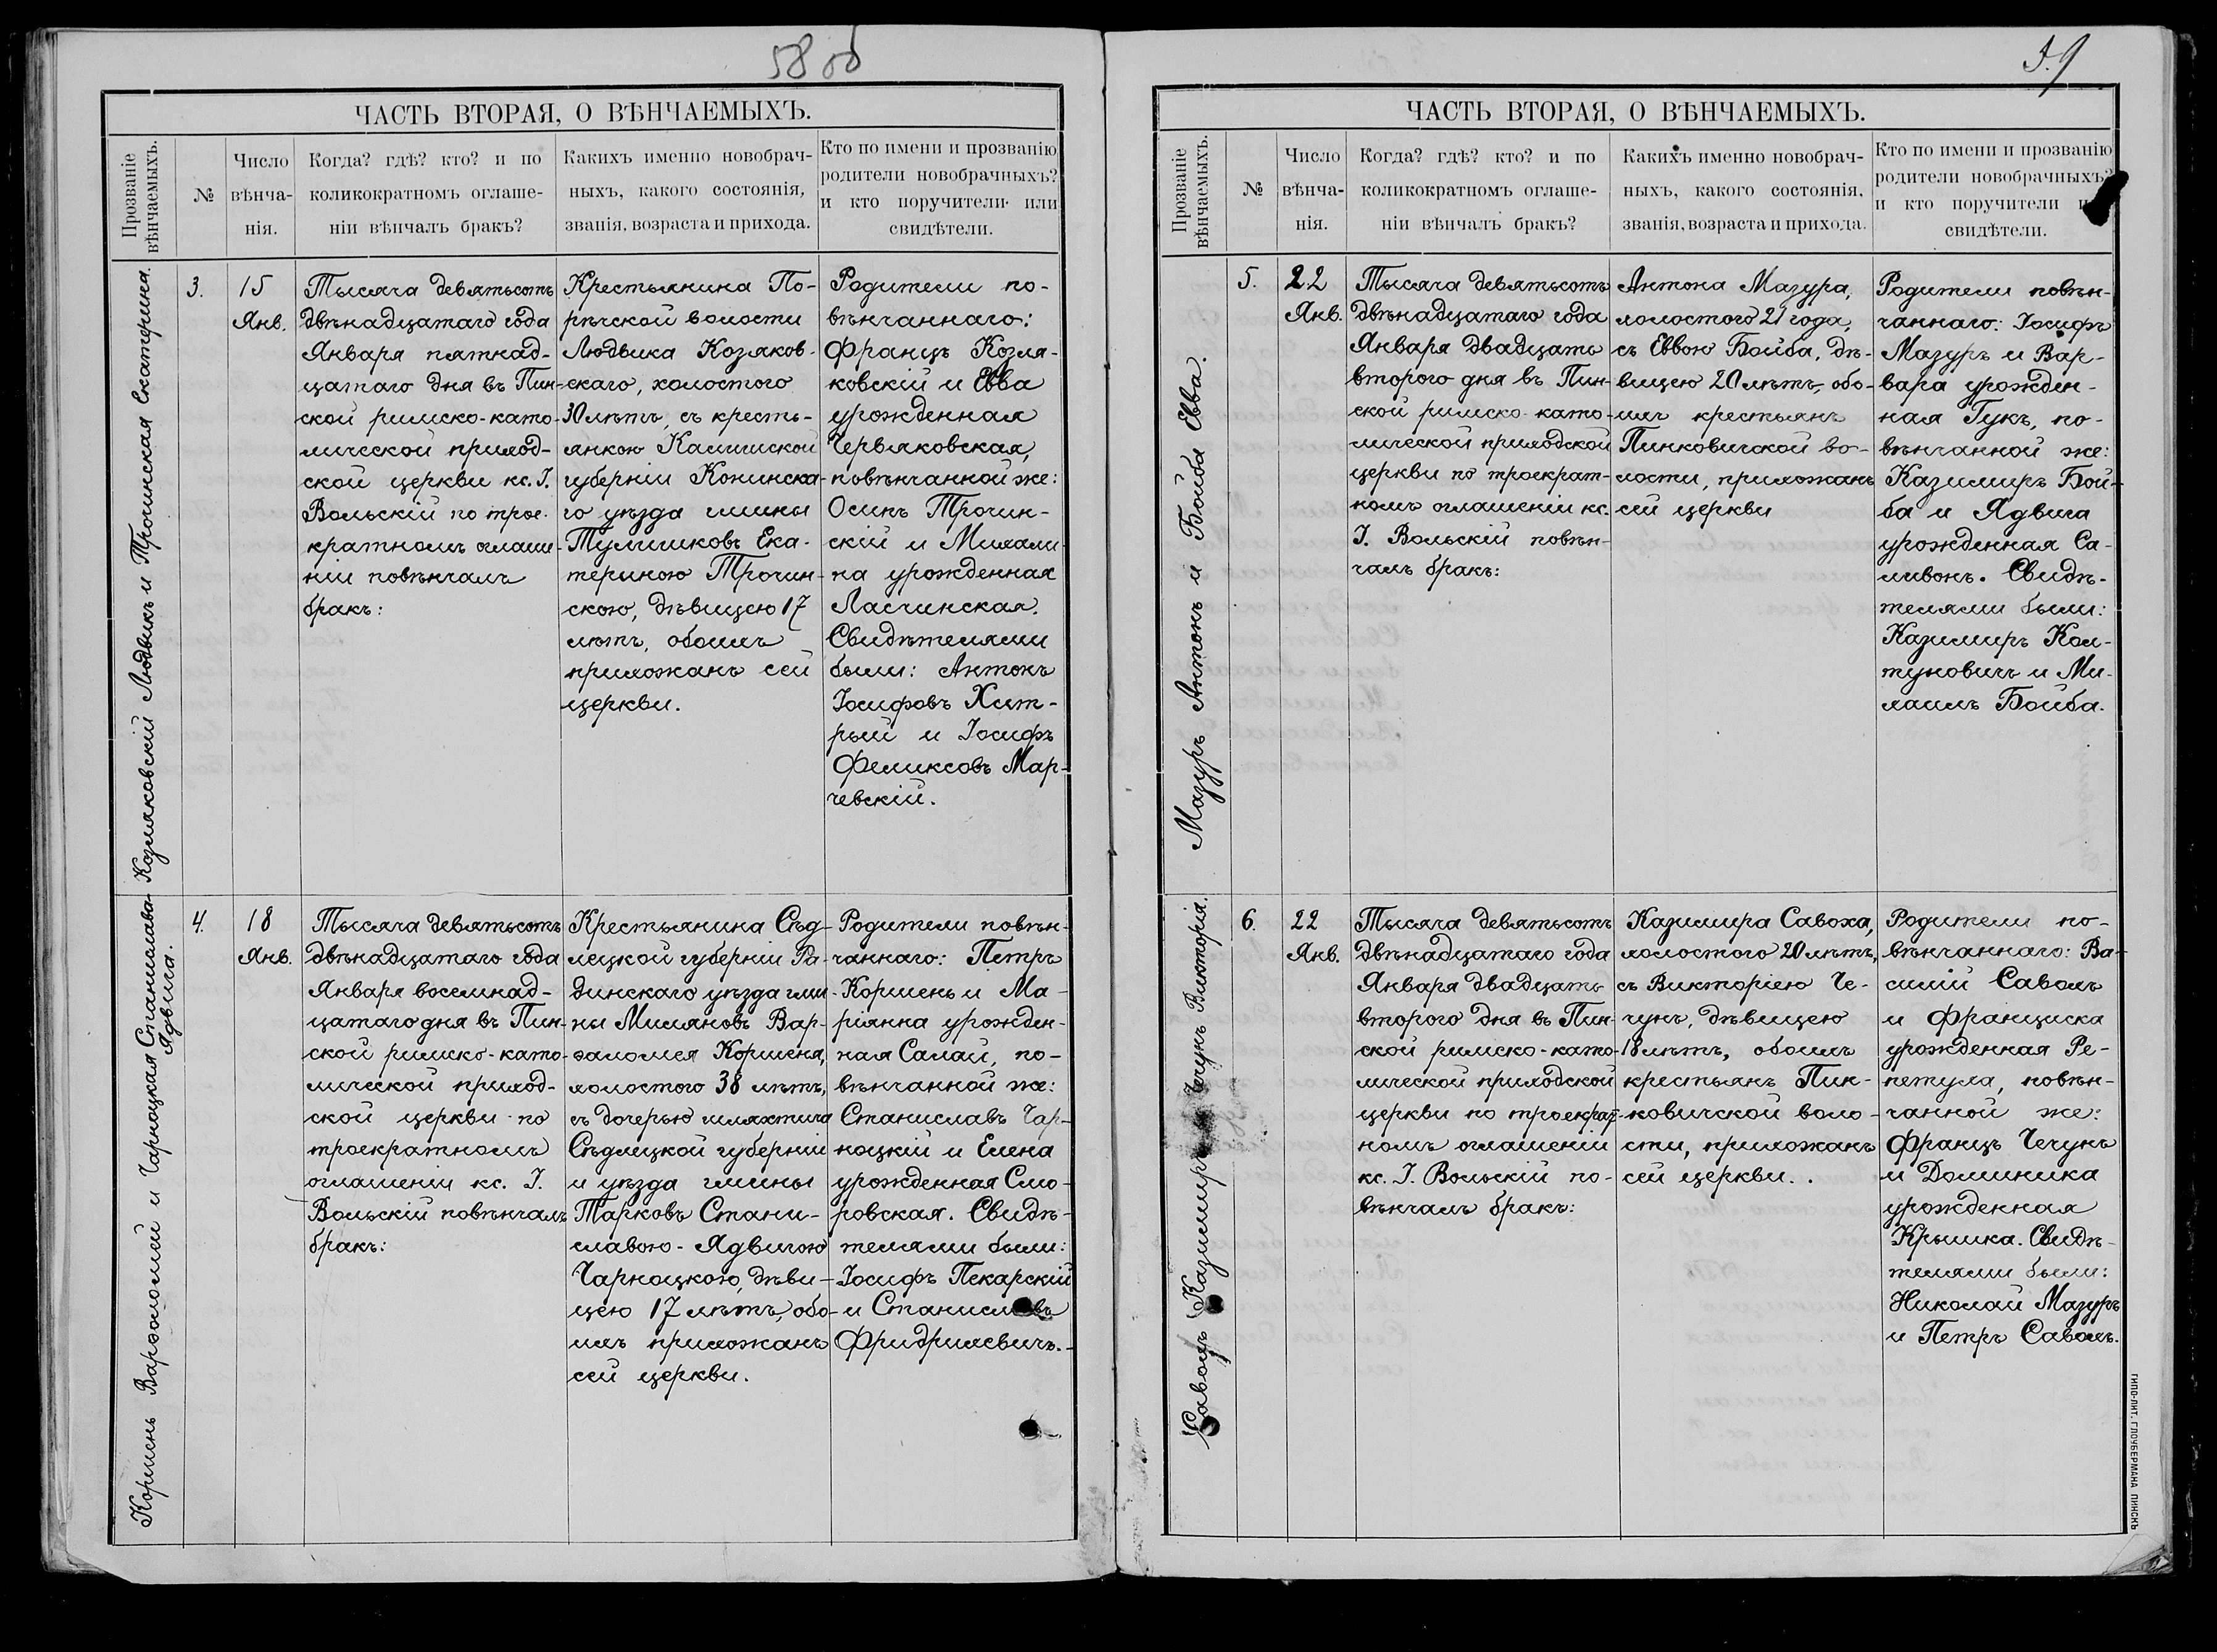 58 об
ЧАСТЬ ВТОРАЯ, О ВѢНЧАЕМЫХЪ.
Прозваніе
вѣнчаемыхъ.
№
Число
вѣнча-
нія.
Когда? гдѣ? кто? и по
коликократномъ оглаше-
ніи вѣнчалъ бракъ?
Какихъ именно новобрач-
ныхъ, какого состоянія,
званія, возраста и прихода.
Кто по имени и прозванію
родители новобрачныхъ?
и кто поручители или
свидѣтели.
Козляковскій Людвикъ и Трочинская Екатерина.
3.
15
Янв.
Тысяча девятьсотъ
двѣнадцатаго года
Января пятнад-
цатаго дня въ Пин-
ской римско-като-
лической приход-
ской церкви кс. І.
Вольскій по трое-
кратномъ оглаше-
ніи повѣнчалъ
бракъ:
Крестьянина По-
рѣчской волости
Людвика Козляков-
скаго, холостого
30 лѣтъ, съ кресть-
янкою Калишской
губерніи Конинска-
го уѣзда гмины
Тулишковъ Ека-
териною Трочин-
скою, дѣвицею 17
лѣтъ, обоихъ
прихожанъ сей
церкви.
Родители по-
вѣнчаннаго:
Францъ Козля-
ковскій и Евва
урожденная
Червяковская,
повѣнчанной же:
Осипъ Трочин-
скій и Михали-
на урожденная
Ласчинская.
Свидѣтелями
были: Антонъ
Іосифовъ Хит-
рый и Іосифъ
Феликсовъ Мар-
чевскій.
Коршень Варфоломей и Чарноцкая Станислава-
Ядвига.
4.
18
Янв.
Тысяча девятьсотъ
двѣнадцатаго года
Января восемнад-
цатаго дня въ Пин-
ской римско-като-
лической приход-
ской церкви по
троекратномъ
оглашеніи кс. І.
Вольскій повѣнчалъ
бракъ:
Крестьянина Сѣд-
лецкой губерніи Ра-
динскаго уѣзда гми-
ны Миляновъ Вар-
фоломея Коршеня,
холостого 38 лѣтъ,
съ дочерью шляхтича
Сѣдлецкой губерніи
и уѣзда гмины
Тарковъ Стани-
славою-Ядвигою
Чарноцкою, дѣви-
цею 17 лѣтъ, обо-
ихъ прихожанъ
сей церкви.
Родители повѣн-
чаннаго: Петръ
Коршень и Ма-
ріянна урожден-
ная Салай, по-
вѣнчанной же:
Станиславъ Чар-
ноцкій и Елена
урожденная Смо-
ровская. Свидѣ-
телями были:
Іосифъ Пекарскій
и Станиславъ
Фридрихевичъ.
59
ЧАСТЬ ВТОРАЯ, О ВѢНЧАЕМЫХЪ.
Прозваніе
вѣнчаемыхъ.
№
Число
вѣнча-
нія.
Когда? гдѣ? кто? и по
коликократномъ оглаше-
ніи вѣнчалъ бракъ?
Какихъ именно новобрач-
ныхъ, какого состоянія,
званія, возраста и прихода.
Кто по имени и прозванію
родители новобрачныхъ?
и кто поручители
свидѣтели.
Мазуръ Антонъ и Бойба Евва.
5.
22
Янв.
Тысяча девятьсотъ
двѣнадцатаго года
Января двадцать
второго дня въ Пин-
ской римско-като-
лической приходской
церкви по троекрат-
номъ оглашеніи кс.
І. Вольскій повѣн-
чалъ бракъ:
Антона Мазура,
холостого 21 года,
съ Еввою Бойба, дѣ-
вицею 20 лѣтъ, обо-
ихъ крестьянъ
Пинковичской во-
лости, прихожанъ
сей церкви
Родители повѣн-
чаннаго: Іосифъ
Мазуръ и Вар-
вара урожден-
ная Гукъ, по-
вѣнчанной же:
Казимиръ Бой-
ба и Ядвига
урожденная Са-
ливонъ. Свидѣ-
телями были:
Казимиръ Кол-
туновичъ и Ми-
хаилъ Бойба.
Савохъ Казимиръ Чечунъ Викторія.
6.
22
Янв.
Тысяча девятьсотъ
двѣнадцатаго года
Января двадцать
второго дня въ Пин-
ской римско-като-
лической приходской
церкви по троекрат-
номъ оглашеніи
кс. І. Вольскій по-
вѣнчалъ бракъ:
Казимира Савоха,
холостого 20 лѣтъ,
съ Викторіею Че-
чунъ, дѣвицею
18 лѣтъ, обоихъ
крестьянъ Пин-
ковичской воло-
сти, прихожанъ
сей церкви.
Родители по-
вѣнчаннаго: Ва-
силій Савохъ
и Франциска
урожденная Ре-
петула, повѣн-
чанной же:
Францъ Чечунъ
и Доминика
урожденная
Крышка. Свидѣ-
телями были:
Николай Мазуръ
и Петръ Савохъ.
ТИПО-ЛИТ. ГЛОУБЕРМАНА ПИНСКЪ